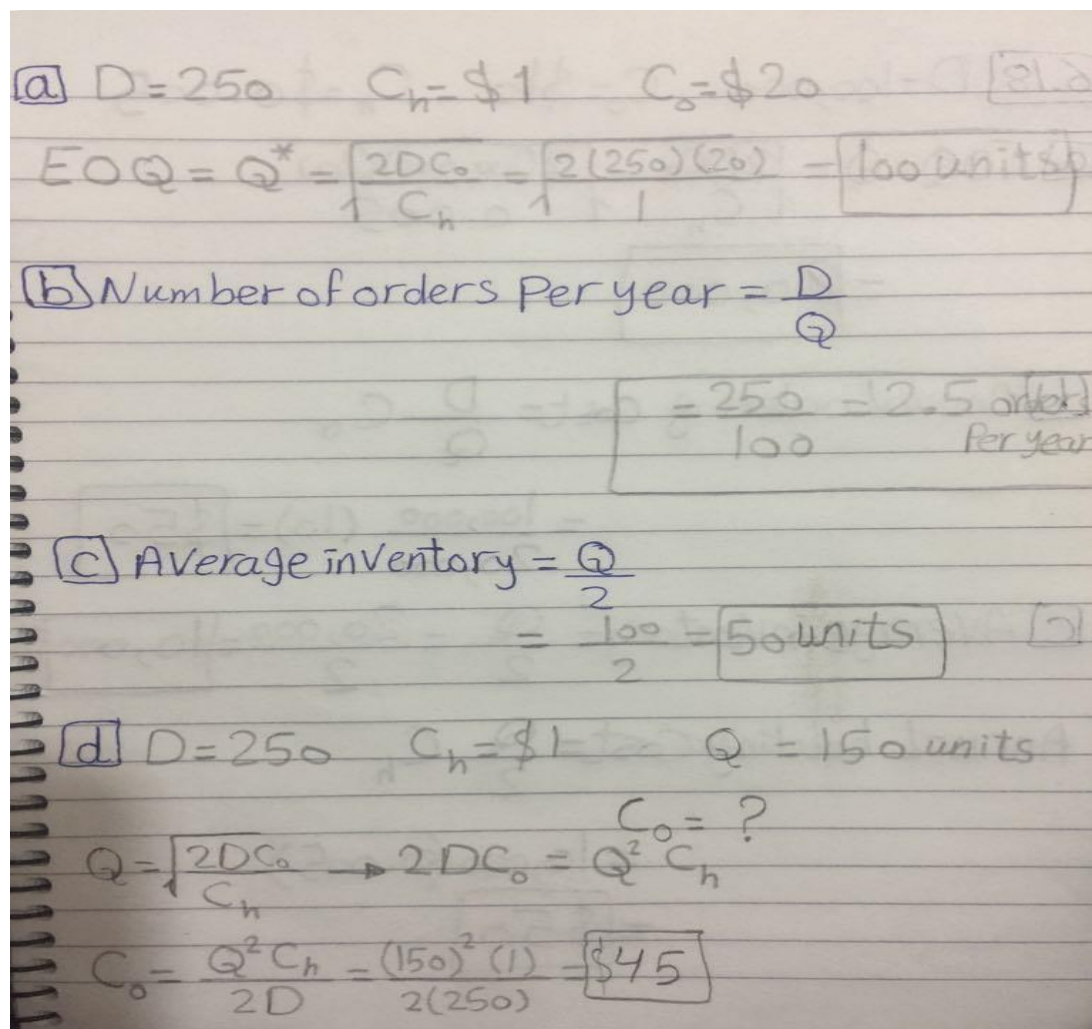 a D = 250 Cₕ = $1 C₀ = $20
EOQ = Q* = √(2DC₀/Cₕ) = √(2(250)(20)/1) = 100 units
b Number of orders Per year = D/Q
= 250/100 = 2.5 orders
Per year
c Average inventory = Q/2
= 100/2 = 50 units
d D = 250 Cₕ = $1 Q = 150 units
C₀ = ?
Q = √(2DC₀/Cₕ) → 2DC₀ = Q² Cₕ
C₀ = Q² Cₕ/2D = (150)² (1)/2(250) = $45